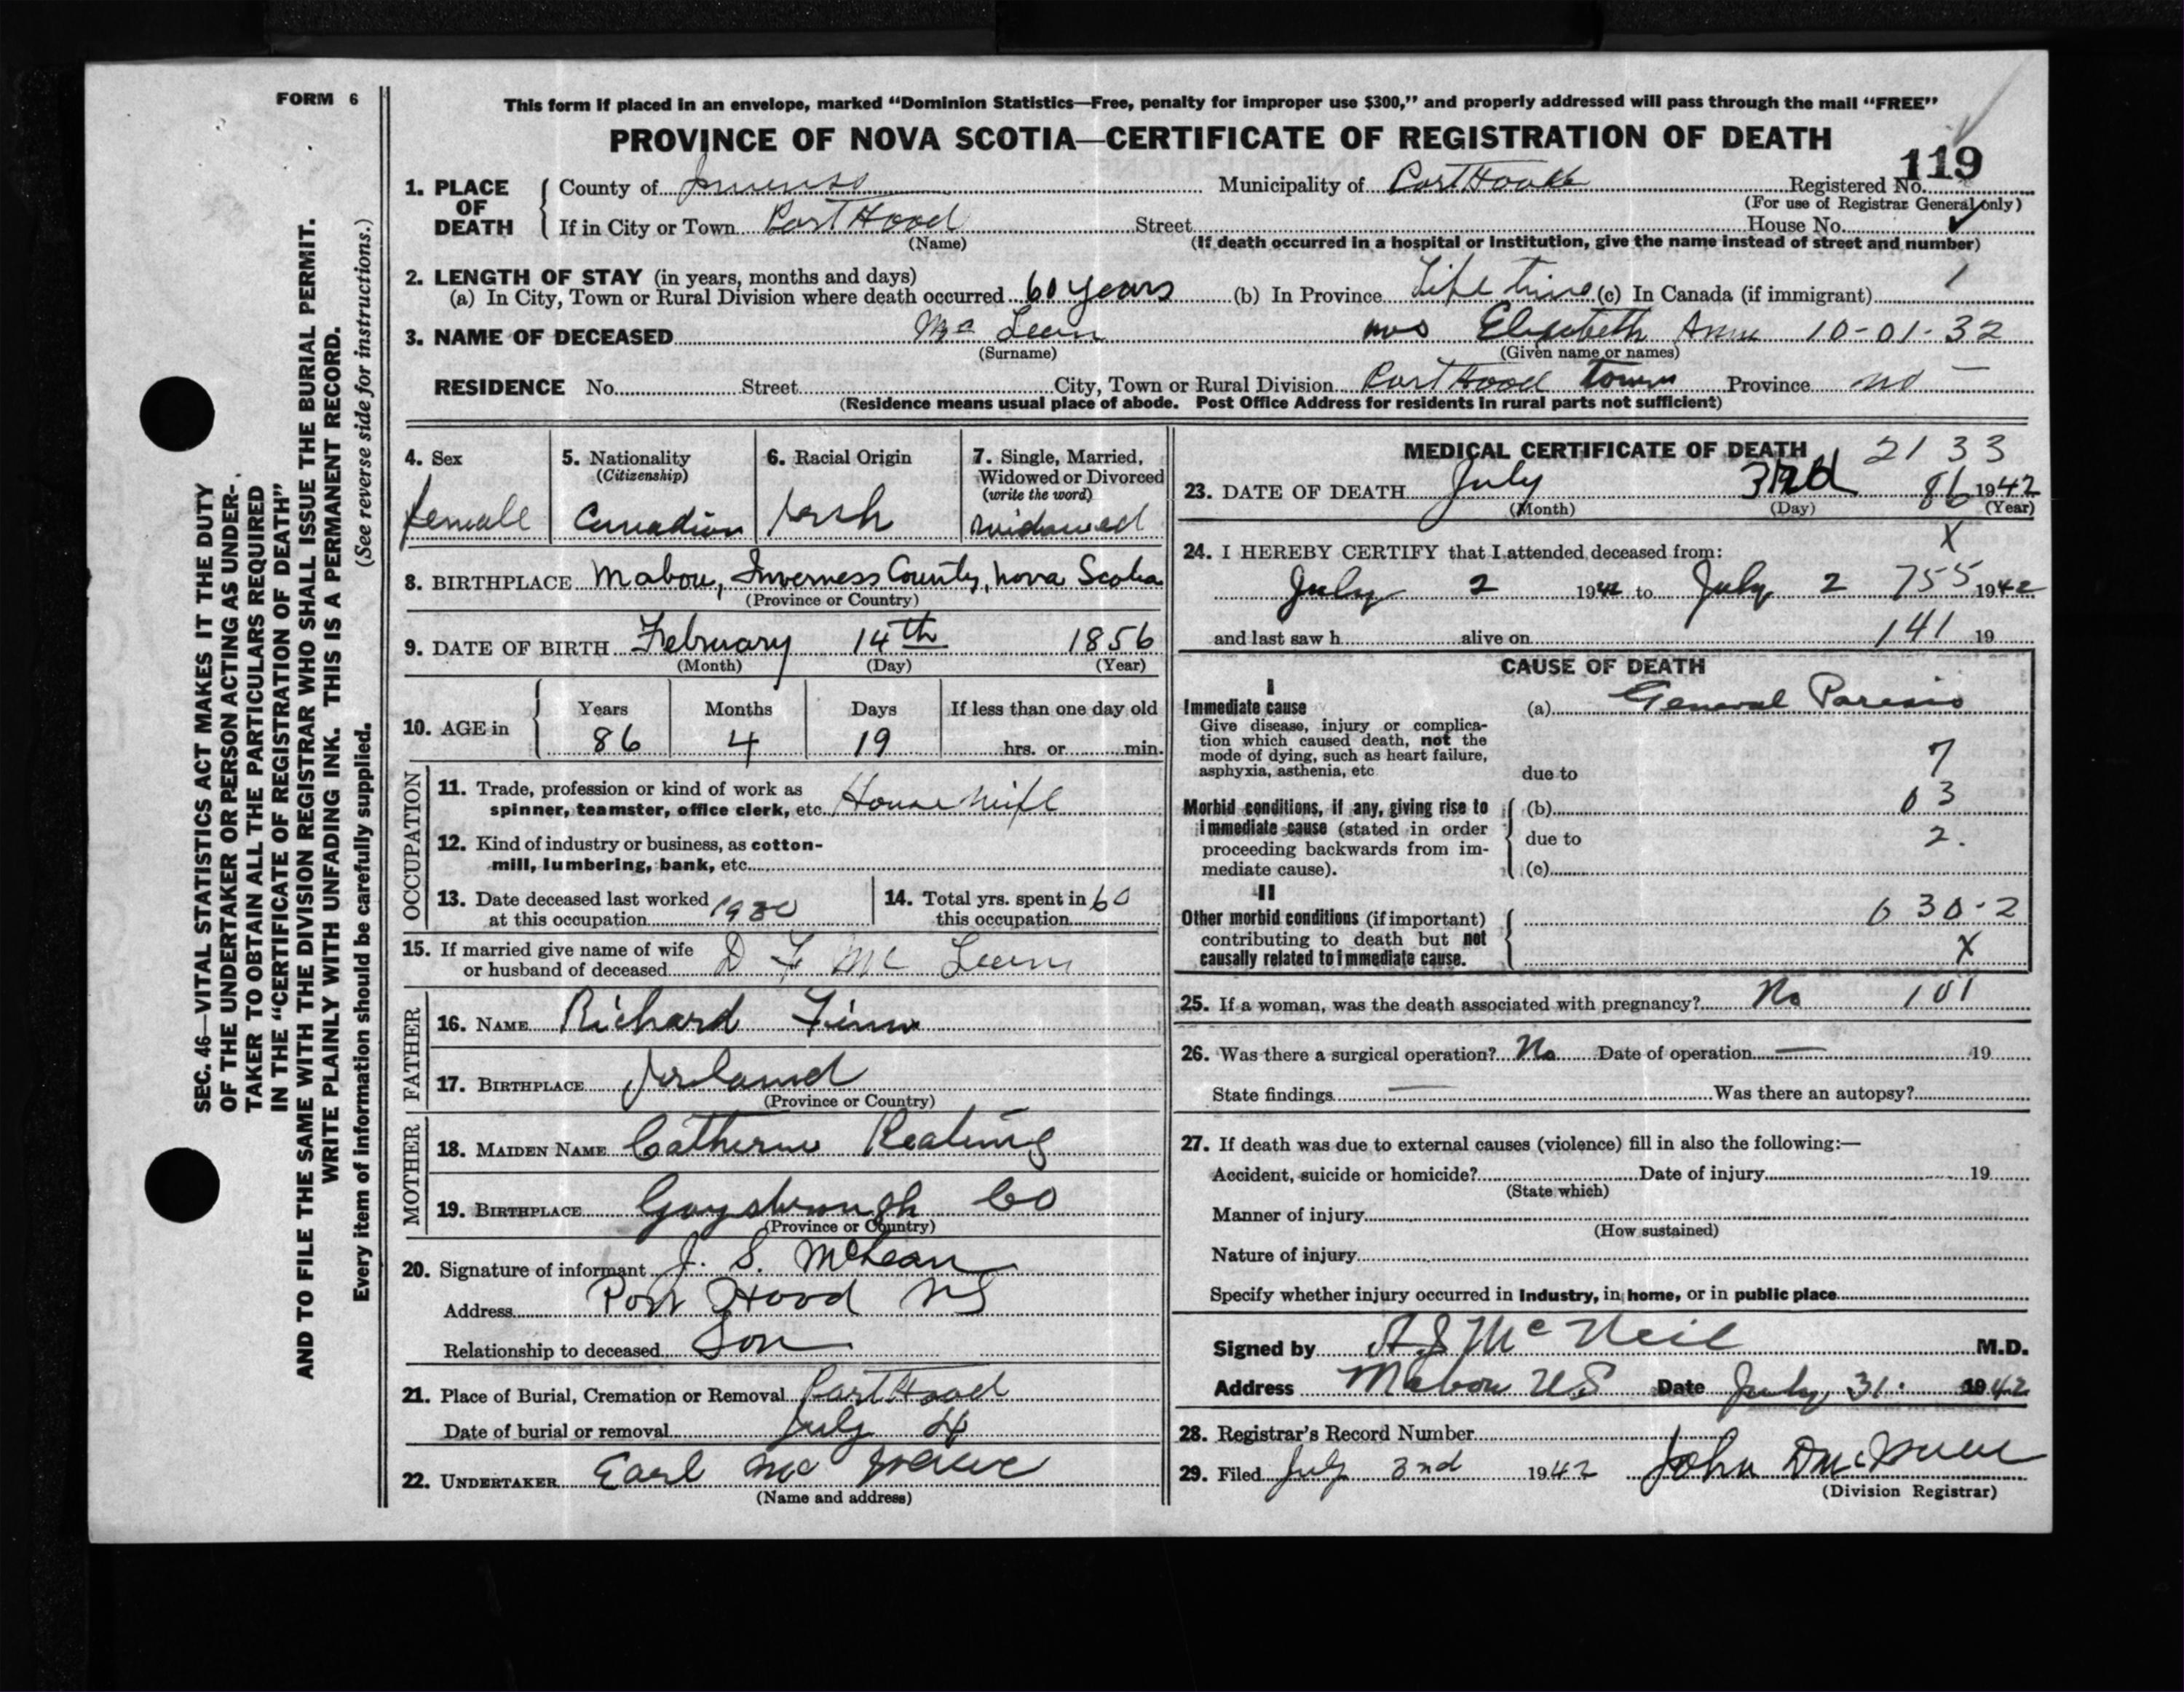 FORM 6
This form if placed in an envelope, marked "Dominion Statistics—Free, penalty for improper use $300," and properly addressed will pass through the mail "FREE"
PROVINCE OF NOVA SCOTIA—CERTIFICATE OF REGISTRATION OF DEATH
119
1. PLACE OF DEATH
County of Inverness Municipality of Port Hood Registered No.
(For use of Registrar General only)
If in City or Town Port Hood Street House No.
(Name) (If death occurred in a hospital or institution, give the name instead of street and number)
2. LENGTH OF STAY (in years, months and days) 1
(a) In City, Town or Rural Division where death occurred 60 years (b) In Province Life time (c) In Canada (if immigrant)
3. NAME OF DECEASED Mc Lean mrs Elizabeth Anne 10-01-32
(Surname) (Given name or names)
RESIDENCE No. Street City, Town or Rural Division Port Hood Town Province NS
(Residence means usual place of abode. Post Office Address for residents in rural parts not sufficient)
4. Sex
female
5. Nationality
(Citizenship)
Canadian
6. Racial Origin
Irish
7. Single, Married, Widowed or Divorced
(write the word)
widowed
8. BIRTHPLACE Mabou, Inverness County, Nova Scotia
(Province or Country)
9. DATE OF BIRTH February 14th 1856
(Month) (Day) (Year)
10. AGE in Years Months Days If less than one day old
86 4 19 hrs. or min.
OCCUPATION
11. Trade, profession or kind of work as
spinner, teamster, office clerk, etc. House wife
12. Kind of industry or business, as cotton-
mill, lumbering, bank, etc.
13. Date deceased last worked
at this occupation 1930
14. Total yrs. spent in 60
this occupation
15. If married give name of wife
or husband of deceased D F Mc Lean
FATHER
16. NAME Richard Finn
17. BIRTHPLACE Ireland
(Province or Country)
MOTHER
18. MAIDEN NAME Catherine Keating
19. BIRTHPLACE Guysborough Co
(Province or Country)
20. Signature of informant J. S. McLean
Address Port Hood NS
Relationship to deceased Son
21. Place of Burial, Cremation or Removal Port Hood
Date of burial or removal July 4
22. UNDERTAKER Earl Mc
(Name and address)
MEDICAL CERTIFICATE OF DEATH 2133
23. DATE OF DEATH July 3rd 86 1942
(Month) (Day) (Year)
24. I HEREBY CERTIFY that I attended deceased from: X
July 2 1942 to July 2 755 1942
and last saw h alive on 141 19
CAUSE OF DEATH
I
Immediate cause
Give disease, injury or complica-
tion which caused death, not the
mode of dying, such as heart failure,
asphyxia, asthenia, etc
(a) General Paresis
due to 7
Morbid conditions, if any, giving rise to
immediate cause (stated in order
proceeding backwards from im-
mediate cause).
(b) 03
due to 2.
(c)
II
Other morbid conditions (if important)
contributing to death but not
causally related to immediate cause.
030-2
X
25. If a woman, was the death associated with pregnancy? No 101
26. Was there a surgical operation? No Date of operation — 19
State findings — Was there an autopsy?
27. If death was due to external causes (violence) fill in also the following:—
Accident, suicide or homicide? Date of injury 19
(State which)
Manner of injury
(How sustained)
Nature of injury
Specify whether injury occurred in Industry, in home, or in public place
Signed by A J McNeil M.D.
Address Mabou N.S Date July, 31. 1942
28. Registrar's Record Number
29. Filed July 3rd 1942 John D
(Division Registrar)
SEC. 46—VITAL STATISTICS ACT MAKES IT THE DUTY
OF THE UNDERTAKER OR PERSON ACTING AS UNDER-
TAKER TO OBTAIN ALL THE PARTICULARS REQUIRED
IN THE "CERTIFICATE OF REGISTRATION OF DEATH"
AND TO FILE THE SAME WITH THE DIVISION REGISTRAR WHO SHALL ISSUE THE BURIAL PERMIT.
WRITE PLAINLY WITH UNFADING INK. THIS IS A PERMANENT RECORD.
Every item of information should be carefully supplied. (See reverse side for instructions.)